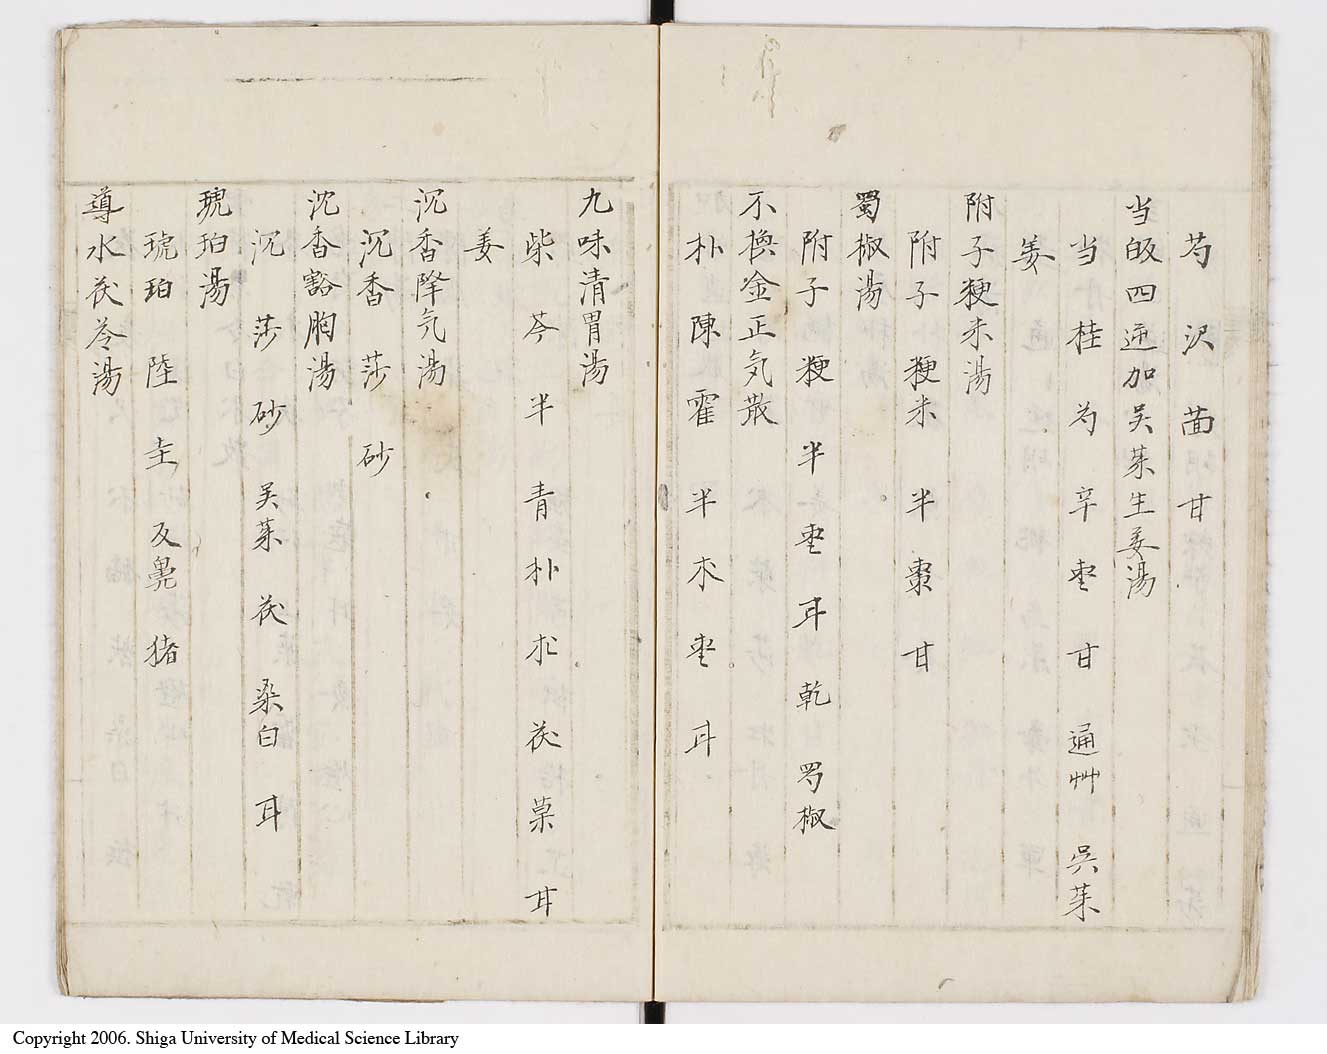 芍 沢 茴 甘
当皈四逆加吴茱生姜湯
当 桂 芍 辛 枣 甘 通艸 呉茱
姜
附子粳米湯
附子 粳米 半 棗 甘
蜀椒湯
附子 粳 半 枣 耳 乾 蜀椒
不換金正気散
朴 陳 霍 半 朮 枣 甘
九味清胃湯
柴 芩 半 青 朴 朮 茯 菓 甘
姜
沉香降気湯
沉香 莎 砂
沈香豁胸湯
沉 莎 砂 吴茱 茯 桒白 耳
琥珀湯
琥珀 陸 圭 反鼻 猪
導水茯苓湯
Copyright 2006. Shiga University of Medical Science Library